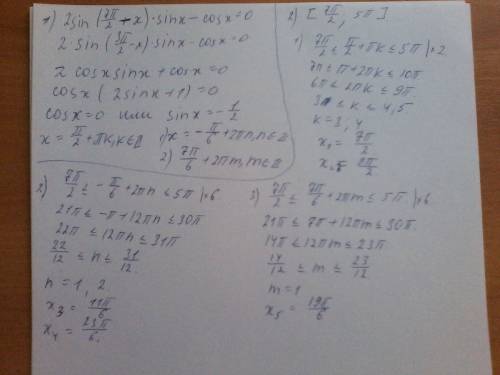 1) 2sin (7π/2 + x) · sinx − cosx = 0
2 · sin (3π/2 − x) sinx − cosx = 0
2 cosx sinx + cosx = 0
cosx (2sinx + 1) = 0
cosx = 0 или sinx = −1/2
x = π/2 + πk, k ∈ Z 1) x = −π/6 + 2πn, n ∈ Z
2) 7π/6 + 2πm, m ∈ Z
2) [7π/2, 5π]
1) 7π/2 ≤ π/2 + πk ≤ 5π | ×2
7π ≤ π + 2πk ≤ 10π
6π ≤ 2πk ≤ 9π
3 ≤ k ≤ 4,5
k = 3, 4
x₁ = 7π/2
x₂ = 9π/2
2) 7π/2 ≤ −π/6 + 2πn ≤ 5π | ×6
21π ≤ −π + 12πn ≤ 30π
22π ≤ 12πn ≤ 31π
22/12 ≤ n ≤ 31/12
n = 1, 2
x₃ = 11π/6
x₄ = 23π/6
3) 7π/2 ≤ 7π/6 + 2πm ≤ 5π | ×6
21π ≤ 7π + 12πm ≤ 30π
14π ≤ 12πm ≤ 23π
14/12 ≤ m ≤ 23/12
m = 1
x₅ = 19π/6